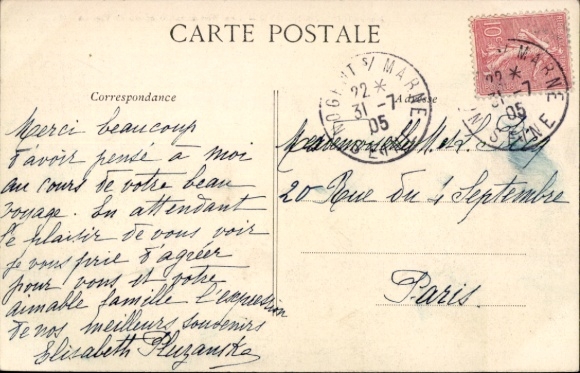 CARTE POSTALE
Correspondance
Adresse
Merci beaucoup
d'avoir pensé à moi
au cours de votre beau
voyage. En attendant
le plaisir de vous voir
je vous prie d'agréer
pour vous et votre
aimable famille l'expression
de nos meilleurs souvenirs
Elisabeth Pluzanska
20 Rue du 4 Septembre
Paris.
NOGENT S/ MARNE
22 *
31 -7
05
SEINE
10
22 *
31 -7
05
MARNE
SEINE